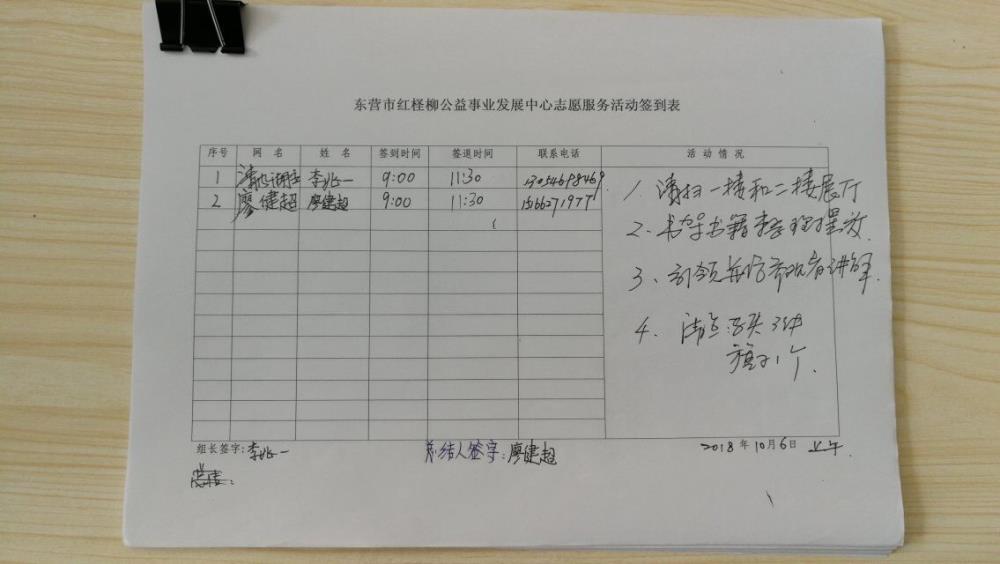 东营市红柽柳公益事业发展中心志愿服务活动签到表
序号 网 名 姓 名 签到时间 签退时间 联系电话 活 动 情 况
1 李兆一 9:00 11:30 13054698469
2 廖健超 廖健超 9:00 11:30 15166271977
1、清扫一楼和二楼展厅
2、书架书籍整理摆放.
3、引领并给参观者讲解.
4、清点
1个.
组长签字:李兆一 总结人签字:廖健超 2018年10月6日 上午